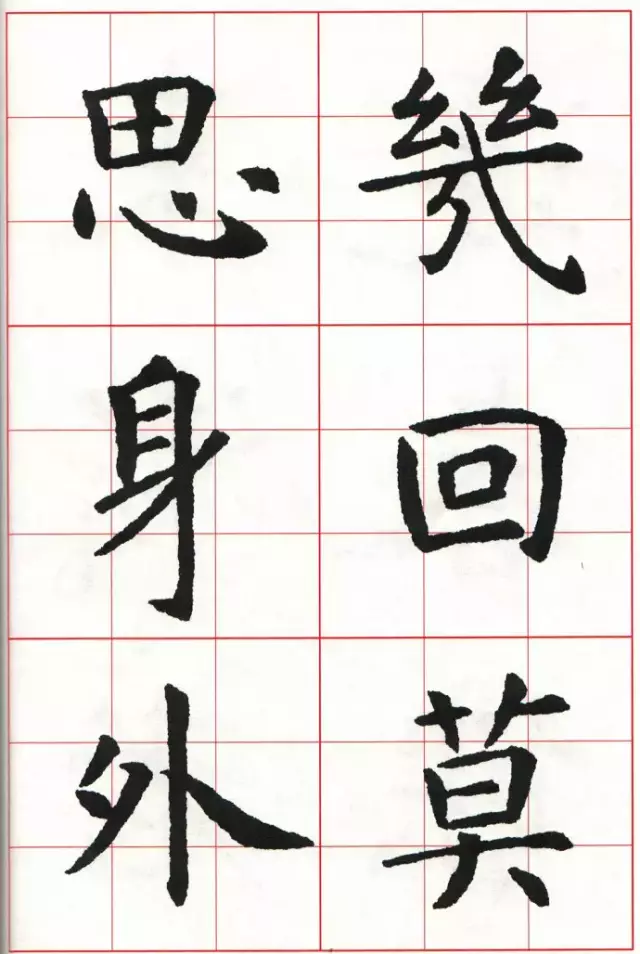 幾回莫
思身外